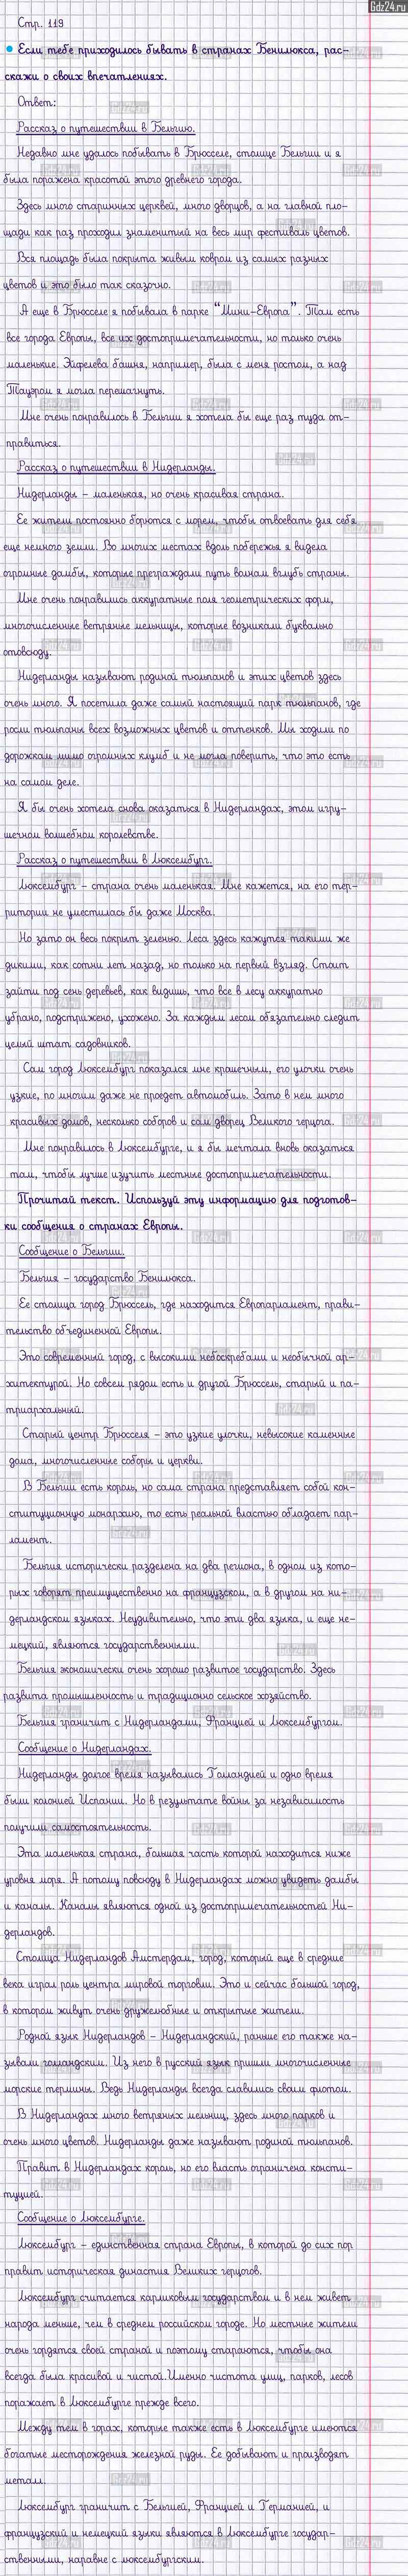 Gdz24.ru
Стр. 119
Если тебе приходилось бывать в странах Бенилюкса, рас-
скажи о своих впечатлениях.
Ответ:
Рассказ о путешествии в Бельгию.
Недавно мне удалось побывать в Брюсселе, столице Бельгии и я
была поражена красотой этого древнего города.
Здесь много старинных церквей, много дворцов, а на главной пло-
щади как раз проходил знаменитый на весь мир фестиваль цветов.
Вся площадь была покрыта живым ковром из самых разных
цветов и это было так сказочно.
А еще в Брюсселе я побывала в парке “Мини-Европа”. Там есть
все города Европы, все их достопримечательности, но только очень
маленькие. Эйфелева башня, например, была с меня ростом, а над
Тауэром я могла перешагнуть.
Мне очень понравилось в Бельгии я хотела бы еще раз туда от-
правиться.
Рассказ о путешествии в Нидерланды.
Нидерланды - маленькая, но очень красивая страна.
Ее жители постоянно борются с морем, чтобы отвоевать для себя
еще немного земли. Во многих местах вдоль побережья я видела
огромные дамбы, которые преграждали путь волнам вглубь страны.
Мне очень понравились аккуратные поля геометрических форм,
многочисленные ветряные мельницы, которые возникали буквально
отовсюду.
Нидерланды называют родиной тюльпанов и этих цветов здесь
очень много. Я посетила даже самый настоящий парк тюльпанов, где
росли тюльпаны всех возможных цветов и оттенков. Мы ходили по
дорожкам мимо огромных клумб и не могла поверить, что это есть
на самом деле.
Я бы очень хотела снова оказаться в Нидерландах, этом игру-
шечном волшебном королевстве.
Рассказ о путешествии в Люксембург.
Люксембург - страна очень маленькая. Мне кажется, на его тер-
ритории не уместилась бы даже Москва.
Но зато он весь покрыт зеленью. Леса здесь кажутся такими же
дикими, как сотни лет назад, но только на первый взгляд. Стоит
зайти под сень деревьев, как видишь, что все в лесу аккуратно
убрано, подстрижено, ухожено. За каждым лесом обязательно следит
целый штат садовников.
Сам город Люксембург показался мне крошечным, его улочки очень
узкие, по многим даже не проедет автомобиль. Зато в нем много
красивых домов, несколько соборов и сам дворец Великого герцога.
Мне понравилось в Люксембурге, и я бы мечтала вновь оказаться
там, чтобы лучше изучить местные достопримечательности.
Прочитай текст. Используй эту информацию для подготов-
ки сообщения о странах Европы.
Сообщение о Бельгии.
Бельгия - государство Бенилюкса.
Ее столица город Брюссель, где находится Европарламент, прави-
тельство объединенной Европы.
Это современный город, с высокими небоскребами и необычной ар-
хитектурой. Но совсем рядом есть и другой Брюссель, старый и па-
триархальный.
Старый центр Брюсселя - это узкие улочки, невысокие каменные
дома, многочисленные соборы и церкви.
В Бельгии есть король, но сама страна представляет собой кон-
ституционную монархию, то есть реальной властью обладает пар-
ламент.
Бельгия исторически разделена на два региона, в одном из кото-
рых говорят преимущественно на французском, а в другом на ни-
дерландском языках. Неудивительно, что эти два языка, и еще не-
мецкий, являются государственными.
Бельгия экономически очень хорошо развитое государство. Здесь
развита промышленность и традиционно сельское хозяйство.
Бельгия граничит с Нидерландами, Францией и Люксембургом.
Сообщение о Нидерландах.
Нидерланды долгое время назывались Голландией и одно время
были колонией Испании. Но в результате войны за независимость
получили самостоятельность.
Эта маленькая страна, большая часть которой находится ниже
уровня моря. А потому повсюду в Нидерландах можно увидеть дамбы
и каналы. Каналы являются одной из достопримечательностей Ни-
дерландов.
Столица Нидерландов Амстердам, город, который еще в средние
века играл роль центра мировой торговли. Это и сейчас большой город,
в котором живут очень дружелюбные и открытые жители.
Родной язык Нидерландов - Нидерландский, раньше его также на-
зывали голландским. Из него в русский язык пришли многочисленные
морские термины. Ведь Нидерланды всегда славились своим флотом.
В Нидерландах много ветряных мельниц, здесь много парков и
очень много цветов. Нидерланды даже называют родиной тюльпанов.
Правит в Нидерландах король, но его власть ограничена консти-
туцией.
Сообщение о Люксембурге.
Люксембург - единственная страна Европы, в которой до сих пор
правит историческая династия Великих герцогов.
Люксембург считается карликовым государством и в нем живет
народа меньше, чем в среднем российском городе. Но местные жители
очень гордятся своей страной и поэтому стараются, чтобы она
всегда была красивой и чистой. Именно чистота улиц, парков, лесов
поражает в Люксембурге прежде всего.
Между тем в горах, которые также есть в Люксембурге имеются
богатые месторождения железной руды. Ее добывают и производят
металл.
Люксембург граничит с Бельгией, Францией и Германией, и
французский и немецкий языки являются в Люксембурге государ-
ственными, наравне с люксембургским.